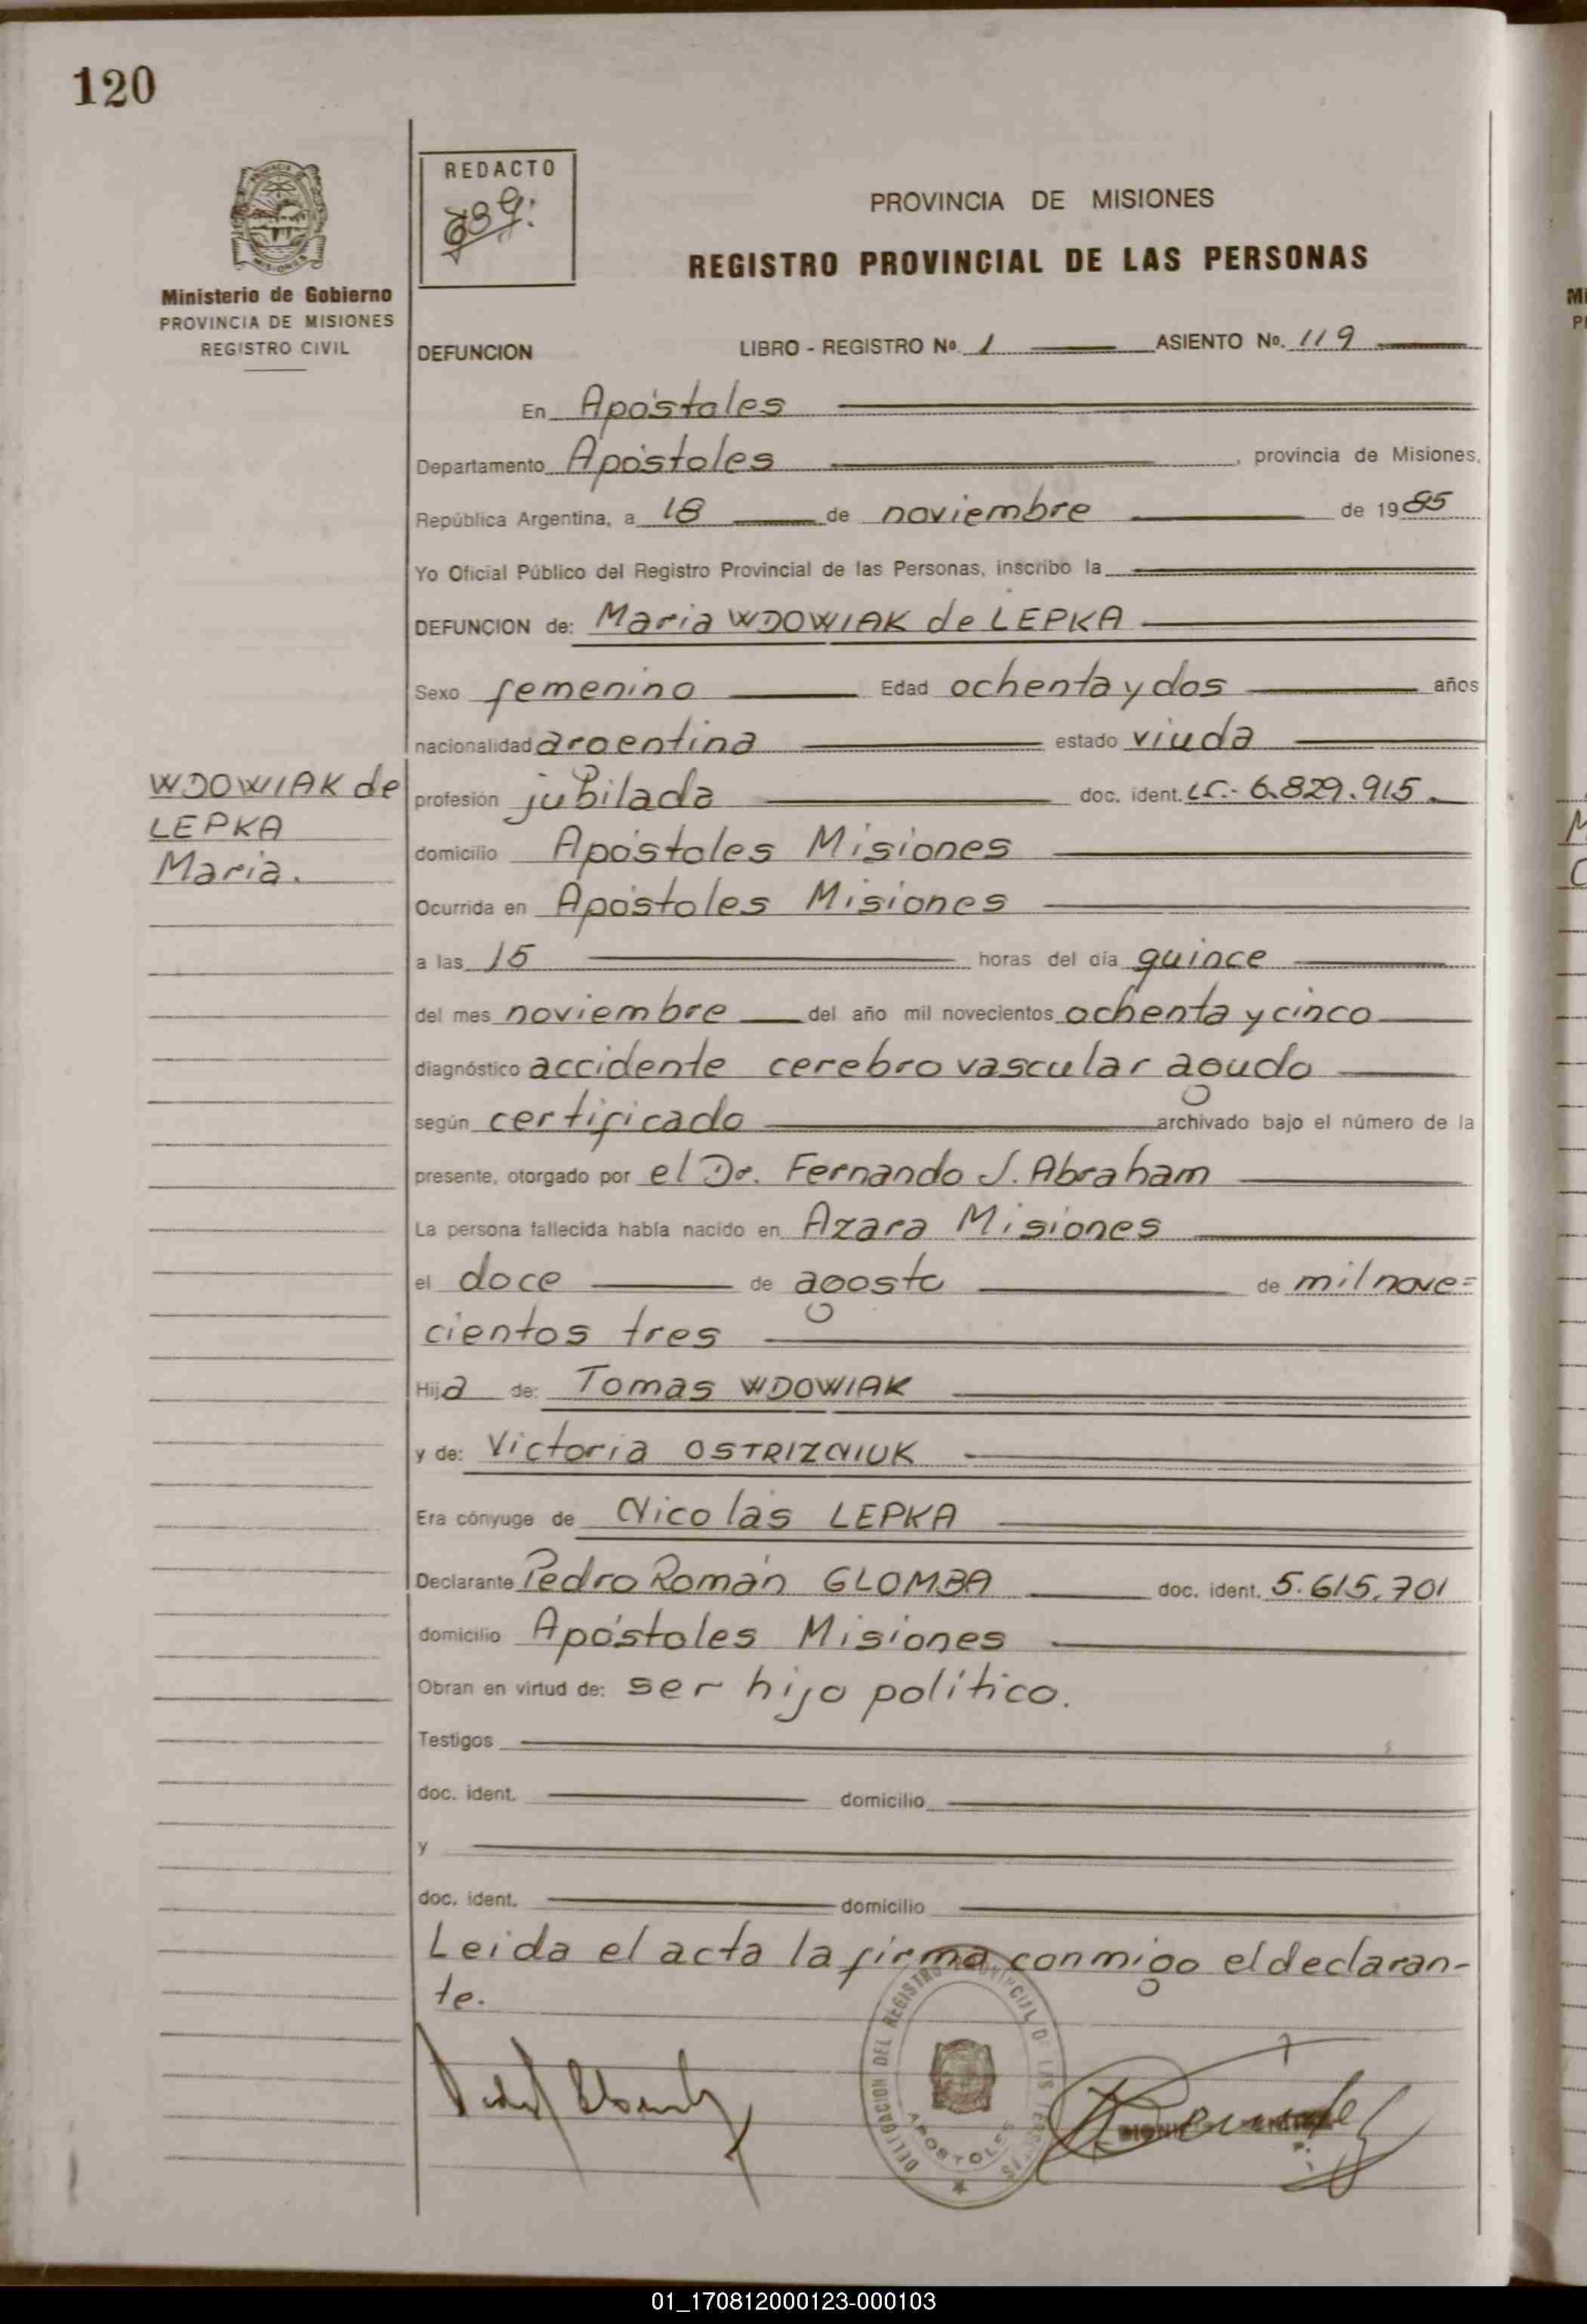 120
REDACTO
PROVINCIA DE MISIONES
REGISTRO PROVINCIAL DE LAS PERSONAS
Ministerio de Gobierno
PROVINCIA DE MISIONES
REGISTRO CIVIL
DEFUNCION LIBRO - REGISTRO Nº 1 ASIENTO Nº. 119
En Apóstoles
Departamento Apóstoles, provincia de Misiones,
República Argentina, a 18 de noviembre de 1985
Yo Oficial Público del Registro Provincial de las Personas, inscribo la
DEFUNCION de: Maria WDOWIAK de LEPKA
Sexo femenino Edad ochenta y dos años
nacionalidad argentina estado viuda
WDOWIAK de
LEPKA
Maria.
profesión jubilada doc. ident. LC.- 6.829.915.
domicilio Apóstoles Misiones
Ocurrida en Apóstoles Misiones
a las 15 horas del día quince
del mes noviembre del año mil novecientos ochenta y cinco
diagnóstico accidente cerebro vascular agudo
según certificado archivado bajo el número de la
presente, otorgado por el Dr. Fernando J. Abraham
La persona fallecida había nacido en Azara Misiones
el doce de agosto de mil nove=
cientos tres
Hija de: Tomas WDOWIAK
y de: Victoria OSTRIZNIUK
Era cónyuge de Nicolás LEPKA
Declarante Pedro Román GLOMBA doc. ident. 5.615.701
domicilio Apóstoles Misiones
Obran en virtud de: ser hijo político.
Testigos
doc. ident. domicilio
y
doc. ident. domicilio
Leida el acta la firma conmigo el declaran-
te.
DELEGACION DEL REGISTRO PROVINCIAL DE LAS PERSONAS
APOSTOLES
01_170812000123-000103